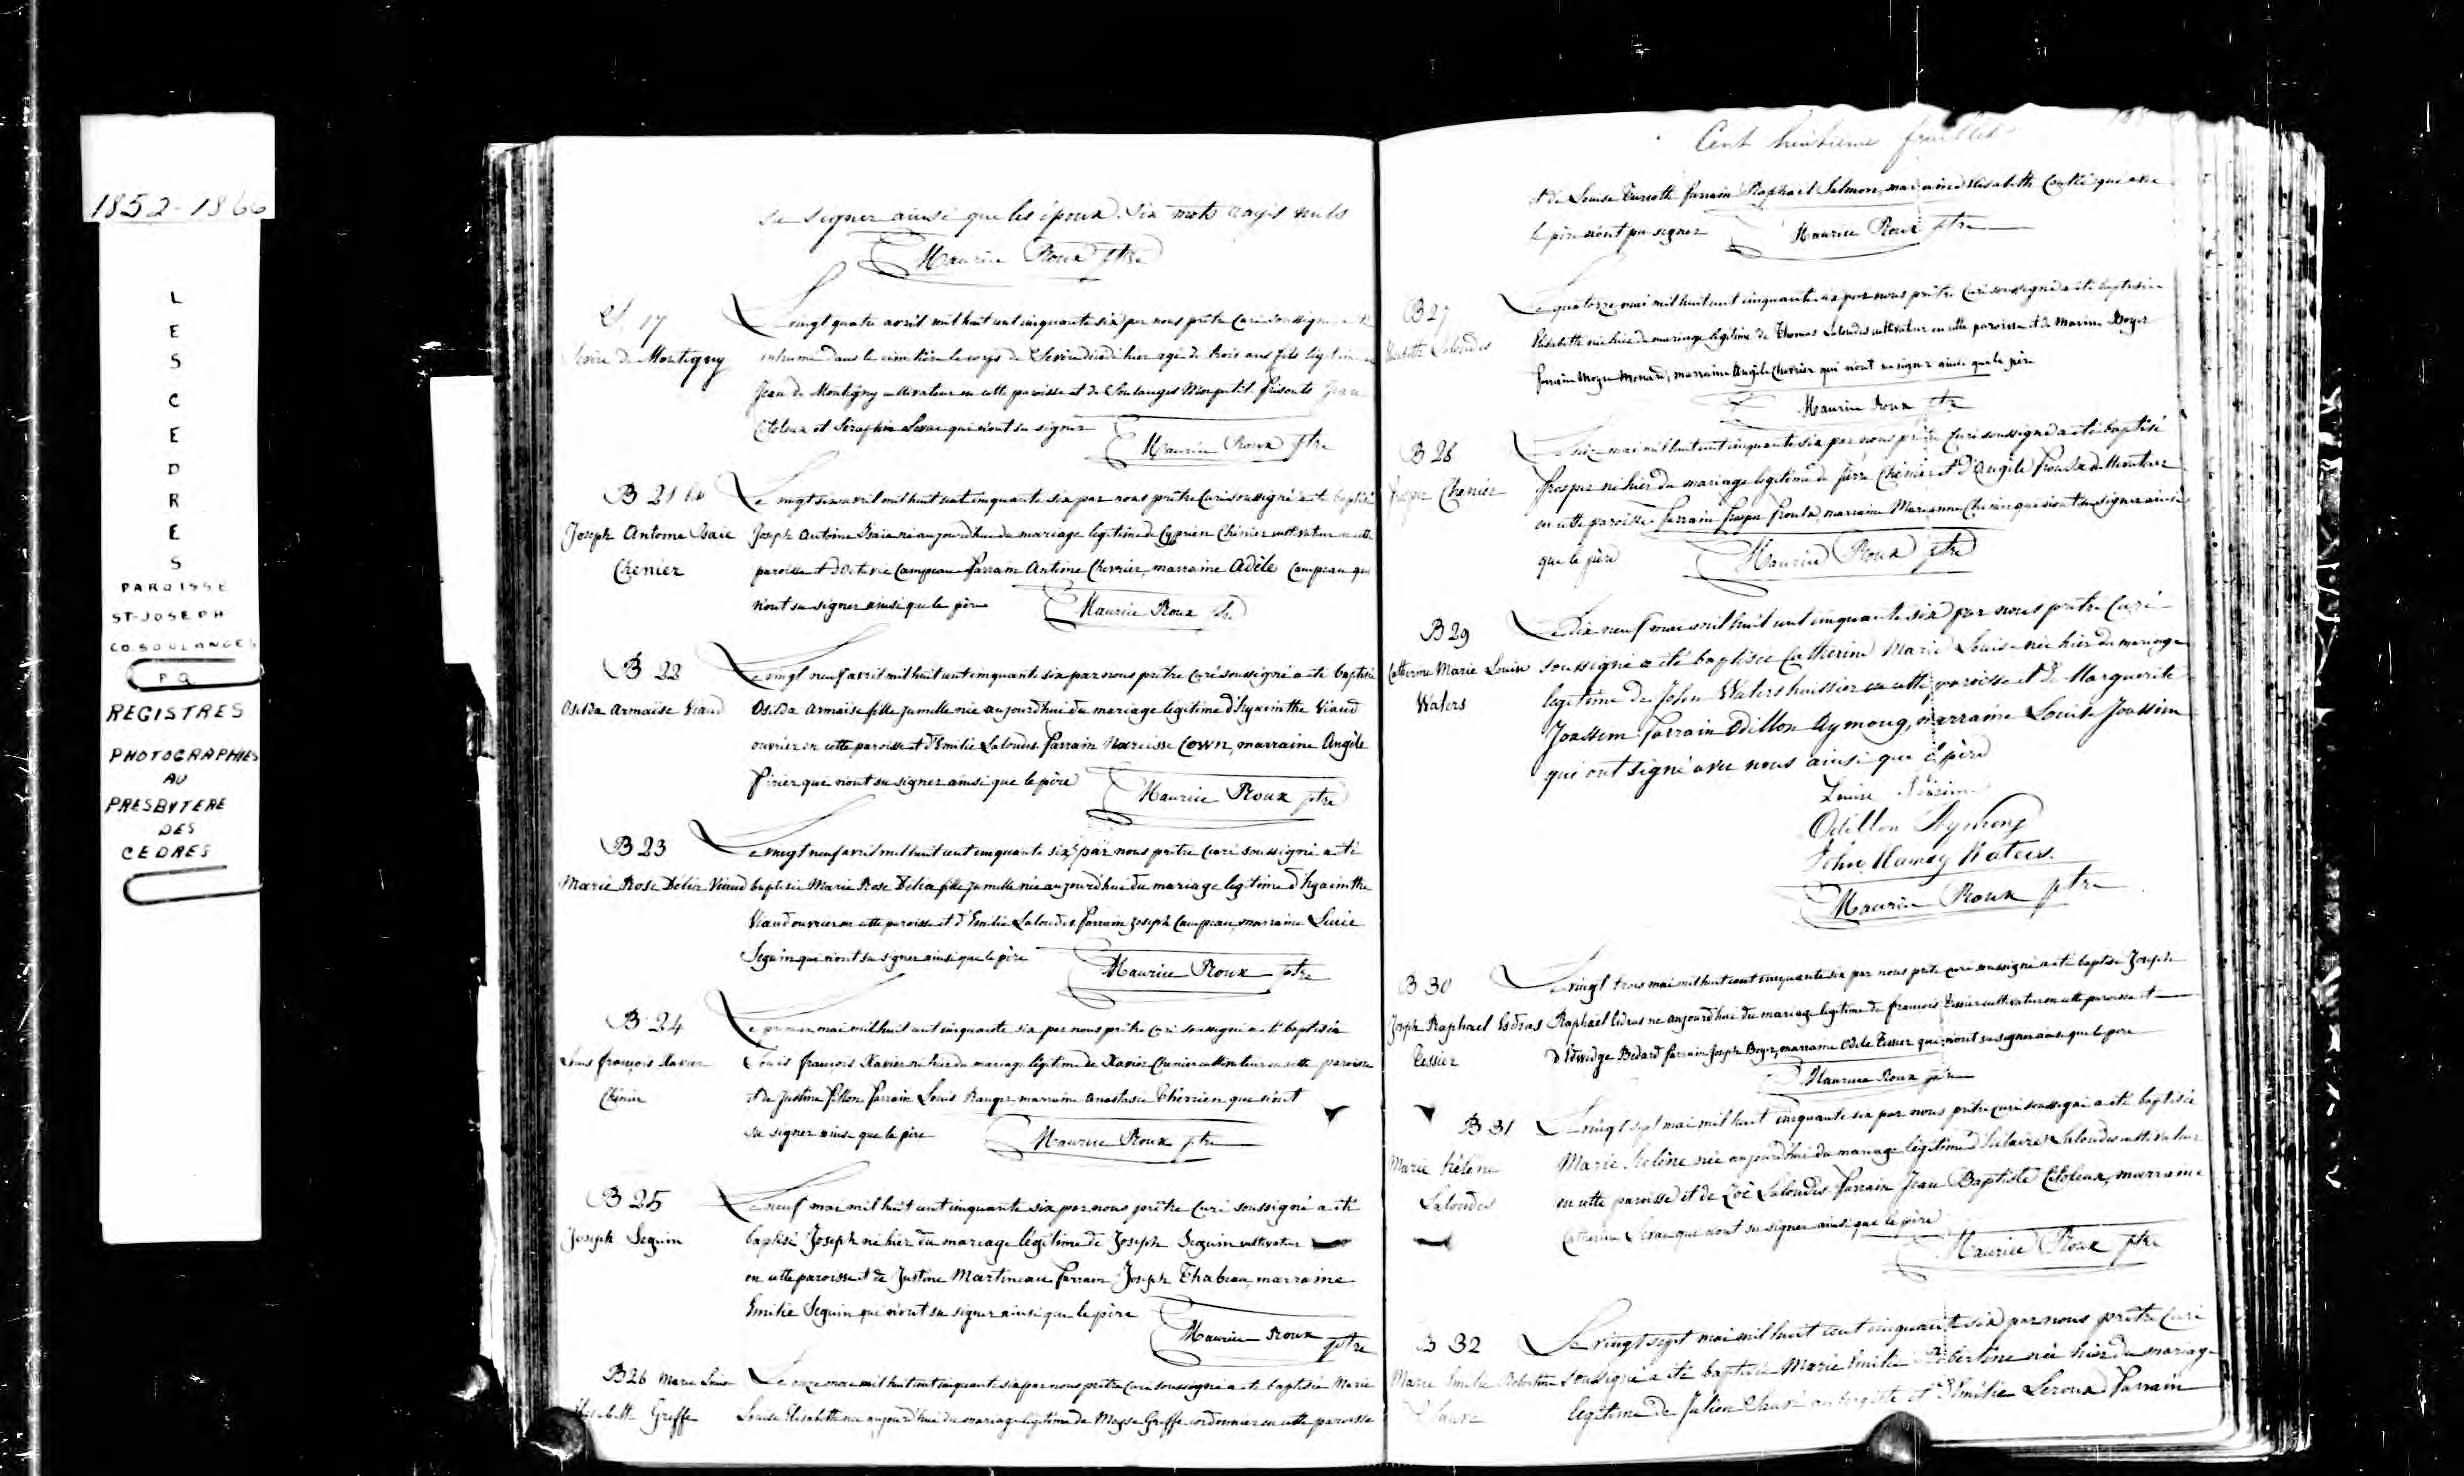 1852-1866
L
E
S
C
E
D
R
E
S
PAROISSE
ST-JOSEPH
CO. SOULANGES
P Q
REGISTRES
PHOTOGRAPHIES
AU
PRESBYTERE
DES
CEDRES
se signer ainsi que les époux. Six mots rayés nuls
Maurice Roux ptre
S. 17
Sévère de Montigny
Le vingt quatre avril mil huit cent cinquante six par nous prêtre Curé soussigné a été
inhumé dans le cimetière le corps de Sévère décédé hier agé de trois ans fils légitime
Jean de Montigny cultivateur en cette paroisse et de Soulanges Présents Jean
Citoleux et Séraphin qui n'ont su signer
Maurice Roux ptre
B 21
Joseph Antoine Isaïe
Chénier
Le vingt six avril mil huit cent cinquante six par nous prêtre Curé soussigné a été baptisé
Joseph Antoine Isaïe né aujourd'hui du mariage légitime de Cyprien Chénier cultivateur en cette
paroisse et d'Octavie Campeau Parrain Antoine Chevrier, marraine Adèle Campeau qui
n'ont su signer ainsi que le père
Maurice Roux ptre
B 22
Osilda Armaïse Viaud
Le vingt neuf avril mil huit cent cinquante six par nous prêtre Curé soussigné a été baptisée
Osilda Armaïse fille jumelle née aujourd'hui du mariage légitime d'hyacinthe Viaud
ouvrier en cette paroisse et d'Emilie Lalondes Parrain Narcisse Cown, marraine Angèle
qui n'ont su signer ainsi que le père
Maurice Roux ptre
B 23
Marie Rose Délia Viaud
Le vingt neuf avril mil huit cent cinquante six, par nous prêtre Curé soussigné a été
baptisée Marie Rose Délia fille jumelle née aujourd'hui du mariage légitime d'hyacinthe
Viaud ouvrier en cette paroisse et d'Emilie Lalondes Parrain Joseph Campeau, marraine Lucie
Seguin qui n'ont su signer ainsi que le père
Maurice Roux ptre
B 24
Louis françois Xavier
Chénier
Le premier mai mil huit cent cinquante six par nous prêtre Curé soussigné a été baptisé
Louis françois Xavier né hier du mariage légitime de Xavier Chénier cultivateur en cette paroisse
et de Justine fillon Parrain Louis Ranger marraine Anastasie Thérrien qui n'ont
su signer ainsi que le père
Maurice Roux ptre
B 25
Joseph Seguin
Le neuf mai mil huit cent cinquante six par nous prêtre Curé soussigné a été
baptisé Joseph né hier du mariage légitime de Joseph Seguin cultivateur
en cette paroisse et de Justine Martineau Parrain Joseph Thabeau, marraine
Emilie Seguin qui n'ont su signer ainsi que le père
Maurice Roux ptre
B 26 Marie Louise
Elisabeth Greffe
Le onze mai mil huit cent cinquante six par nous prêtre Curé soussigné a été baptisée Marie
Louise Elisabeth née aujourd'hui du mariage légitime de Moyse Greffe cordonnier en cette paroisse
Cent huitième feuillet
et de Louise Turcotte Parrain Raphael Salmon, marraine Elisabeth Coutté qui avec
le père n'ont pu signer
Maurice Roux ptre
B 27
Elisabeth Lalondes
Le quatorze mai mil huit cent cinquante six par nous prêtre Curé soussigné a été baptisée
Elisabeth née hier du mariage légitime de Thomas Lalondes cultivateur en cette paroisse et de Marine Boyer
Parrain Moyse Menard, marraine Angèle Chevrier qui n'ont su signer ainsi que le père
Maurice Roux ptre
B 28
Prosper Chénier
mai mil huit cent cinquante six par nous prêtre Curé soussigné a été baptisé
Prosper né hier du mariage légitime de Pierre Chénier et d'Angèle Proulx cultivateur
en cette paroisse Parrain Prosper Proulx, marraine Marianne Chénier qui n'ont su signer ainsi
que le père
Maurice Roux ptre
B 29
Catherine Marie Louise
Waters
Le dix neuf mai mil huit cent cinquante six par nous prêtre Curé
soussigné a été baptisée Catherine Marie Louise née hier du mariage
légitime de John Waters huissier en cette paroisse et de Marguerite
Joassim Parrain Odillon Aymong, marraine Louise Joassim
qui ont signé avec nous ainsi que le père
Louise
Odillon Aymong
John Waters
Maurice Roux ptre
B 30
Joseph Raphael Esdras
Tessier
Le vingt trois mai mil huit cent cinquante six par nous prêtre curé soussigné a été baptisé Joseph
Raphael Esdras né aujourd'hui du mariage légitime de francois Tessier cultivateur en cette paroisse et
d'Edwidge Bedard Parrain Joseph Boyer, marraine Odile Tessier qui n'ont su signer ainsi que le père
Maurice Roux ptre
B 31
Marie hélène
Lalondes
Le vingt sept mai mil huit cinquante six par nous prêtre curé soussigné a été baptisée
Marie hélène née aujourd'hui du mariage légitime d'hilaire Lalondes cultivateur
en cette paroisse et de Zoé Lalondes Parrain Jean Baptiste Citoleux, marraine
Catherine qui n'ont su signer ainsi que le père
Maurice Roux ptre
B 32
Marie Emilie Robertine
Sauvé
Le vingt sept mai mil huit cent cinquante six par nous prêtre Curé
soussigné a été baptisée Marie Emilie Robertine née hier du mariage
légitime de Julien Sauvé aubergiste et d'Emilie Leroux Parrain